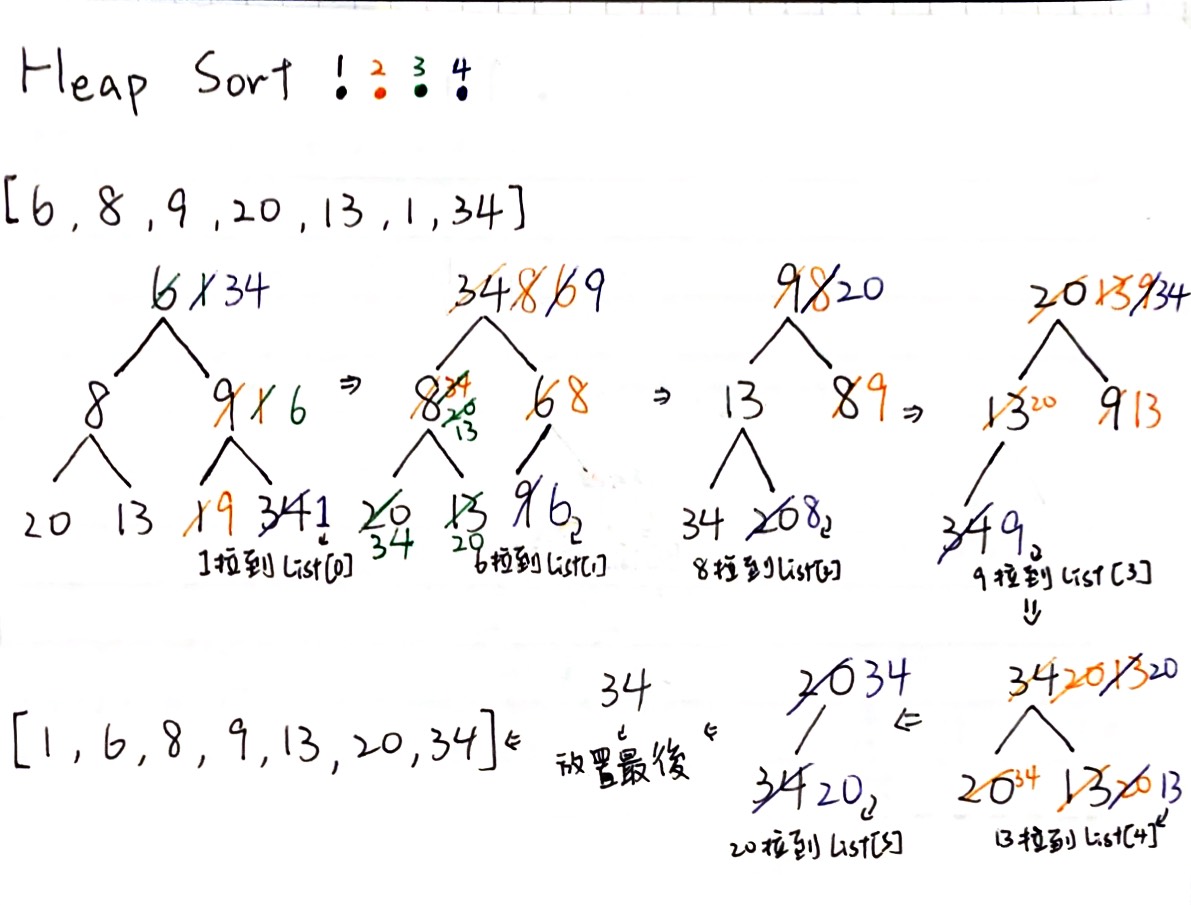 Heap Sort 1 2 3 4
[6, 8, 9, 20, 13, 1, 34]
6 1 34
8 9 1 6
20 13 1 9 34 1
1拉到 List[0]
⇒
34 8 6 9
8 34 20 13 6 8
20 34 13 20 9 6
6拉到 List[1]
⇒
9 8 20
13 8 9
34 20 8
8拉到 List[2]
⇒
20 13 9 34
13 20 9 13
34 9
9拉到 List[3]
⇓
34 20 13 20
20 34 13 20 13
13拉到 List[4]
⇐
20 34
34 20
20拉到 List[5]
⇐
34
放置最後
⇐
[1, 6, 8, 9, 13, 20, 34]